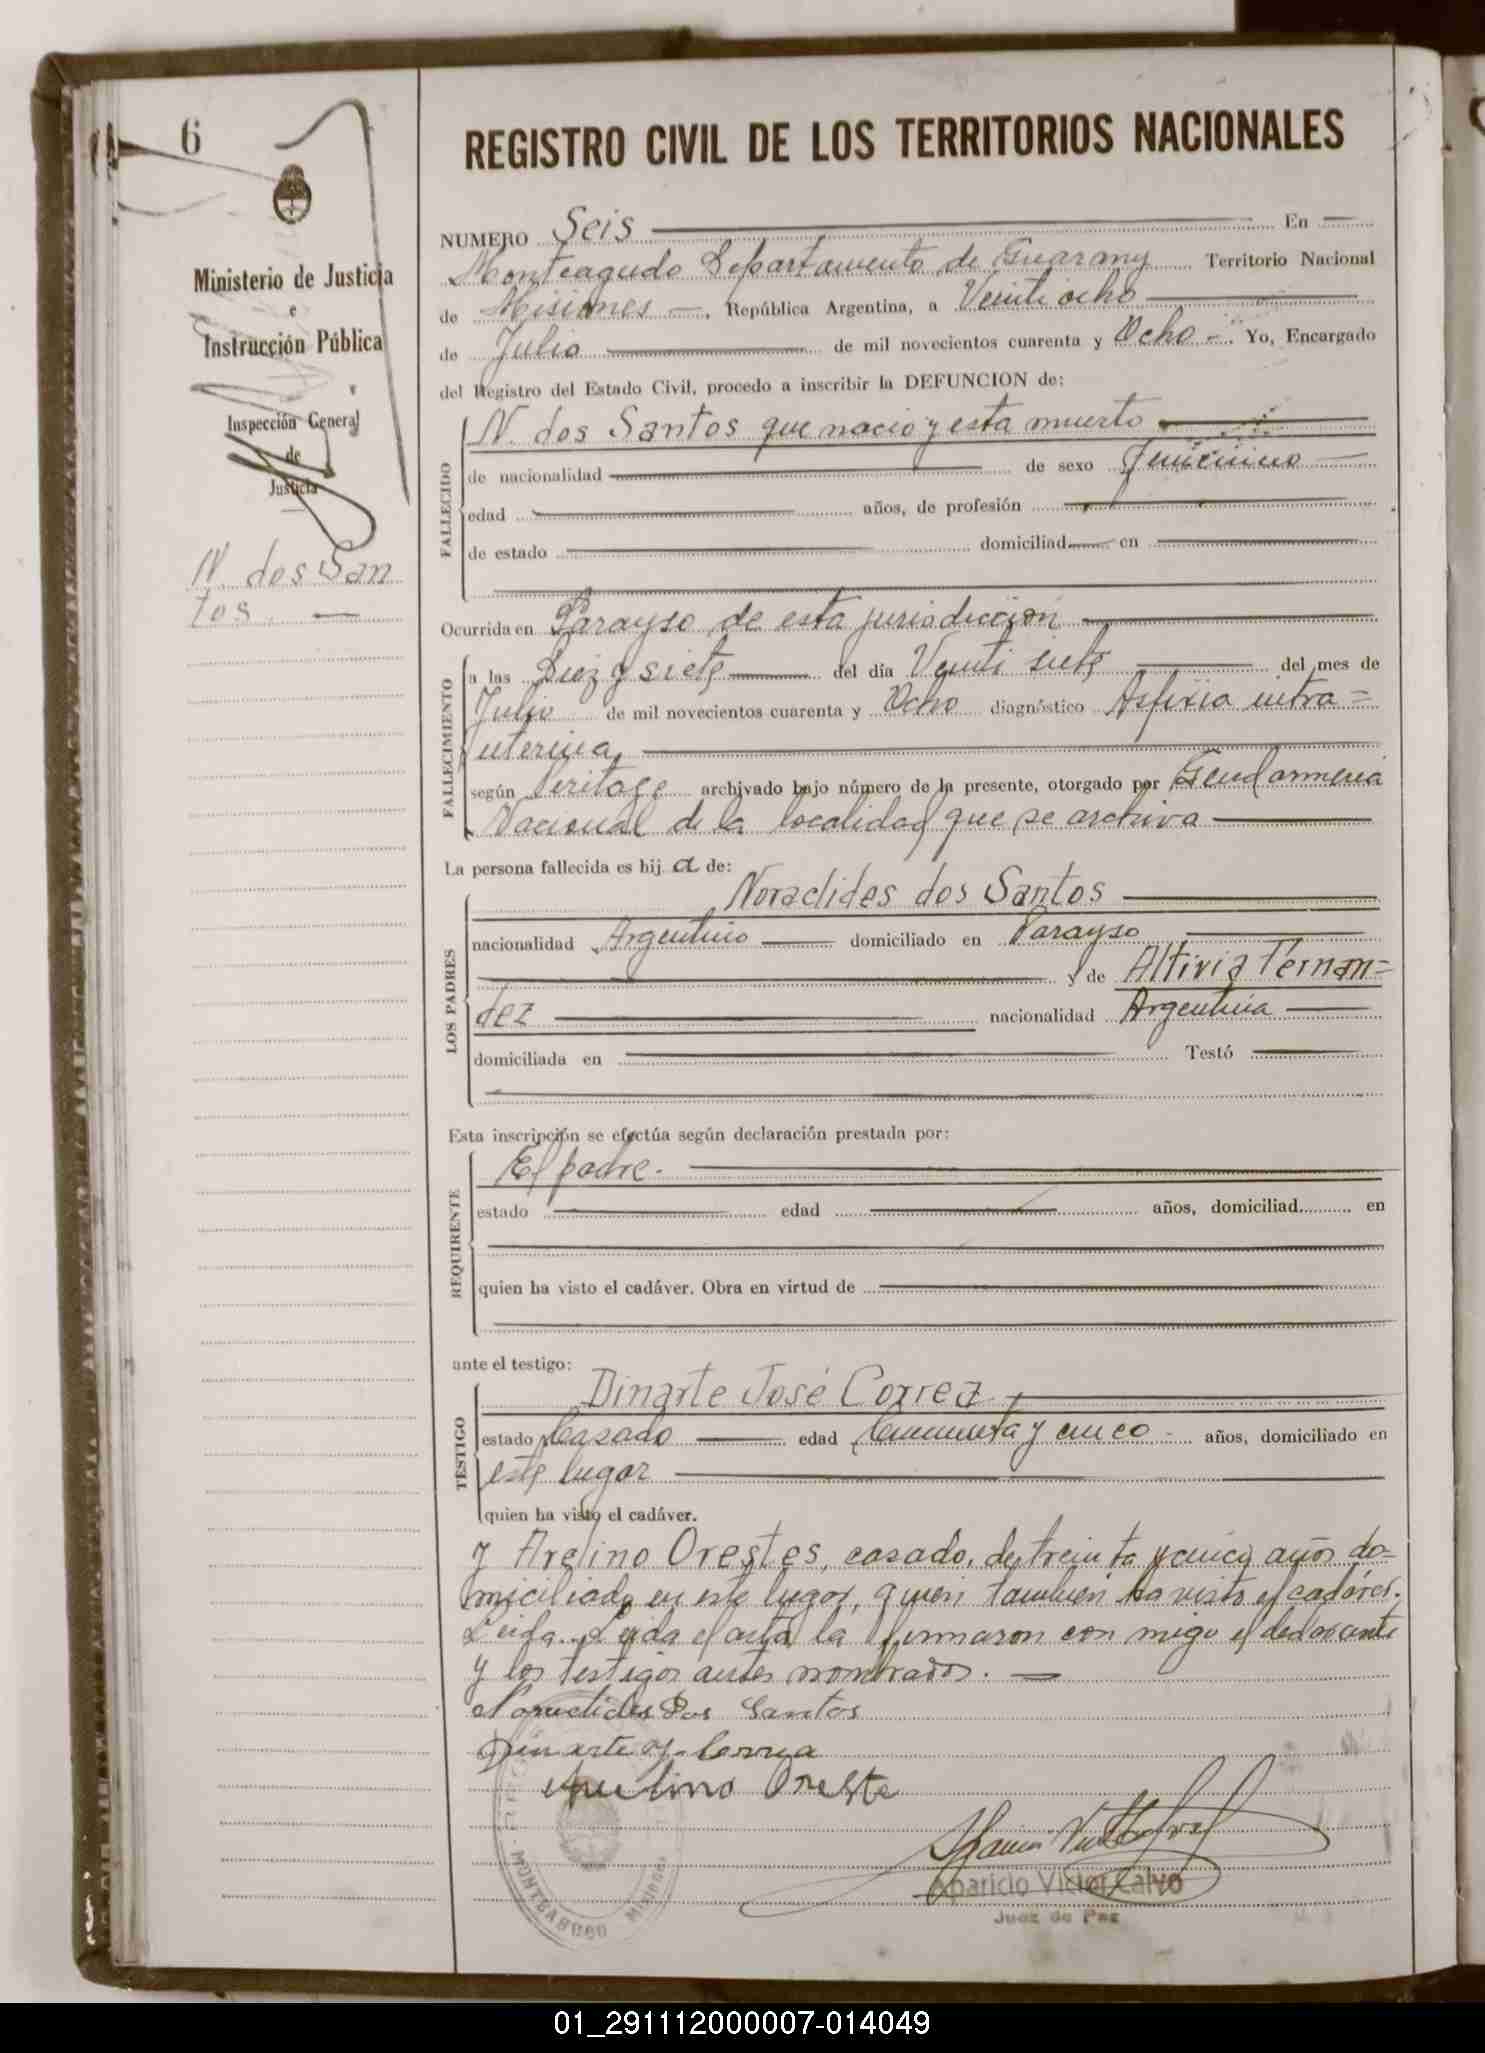 6
Ministerio de Justicia
e
Instrucción Pública
Inspección General
de
Justicia
N. dos San
tos. —
REGISTRO CIVIL DE LOS TERRITORIOS NACIONALES
NUMERO Seis — En —
Monteagudo Departamento de Guarany Territorio Nacional
de Misiones —, República Argentina, a Veinti ocho —
de Julio — de mil novecientos cuarenta y Ocho -. Yo, Encargado
del Registro del Estado Civil, procedo a inscribir la DEFUNCION de:
FALLECIDO
N. dos Santos que nacio y esta muerto —
de nacionalidad — de sexo femenino —
edad — años, de profesión —
de estado — domiciliad— en —
Ocurrida en Parayso de esta jurisdiccion —
FALLECIMIENTO
a las Diez y siete — del día Veinti siete — del mes de
Julio de mil novecientos cuarenta y Ocho diagnóstico Asfixia intra=
uterina —
según Peritage archivado bajo número de la presente, otorgado por Gendarmeria
Nacional de la localidad que se archiva —
La persona fallecida es hij a de:
LOS PADRES
Noraclides dos Santos —
nacionalidad Argentino — domiciliado en Parayso —
— y de Altivia Fernan=
dez — nacionalidad Argentina —
domiciliada en — Testó —
Esta inscripción se efectúa según declaración prestada por:
REQUIRENTE
El padre. —
estado — edad — años, domiciliad en
quien ha visto el cadáver. Obra en virtud de —
ante el testigo:
TESTIGO
Dinarte José Correa —
estado Casado — edad Cincuenta y cinco - años, domiciliado en
este lugar —
quien ha visto el cadáver.
y Avelino Orestes, casado, de treinta y cinco años do=
miciliado en este lugar, quien tambien ha visto el cadáver.
Leida. Leida el acta la firmaron con migo el declarante
y los testigos antes nombrados. —
Noraclides Dos Santos
Dinarte J. Correa
Avelino Oreste
Aparicio Victor Calvo
Juez de Paz
MONTEAGUDO
01_291112000007-014049